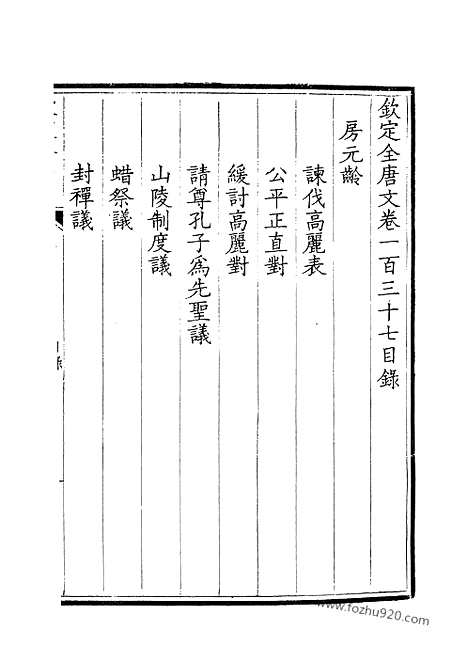 欽定全唐文卷一百三十七目錄
房元齡
諫伐高麗表
公平正直對
緩討高麗對
請尊孔子爲先聖議
山陵制度議
蜡祭議
封禪議
www.fozhu920.com